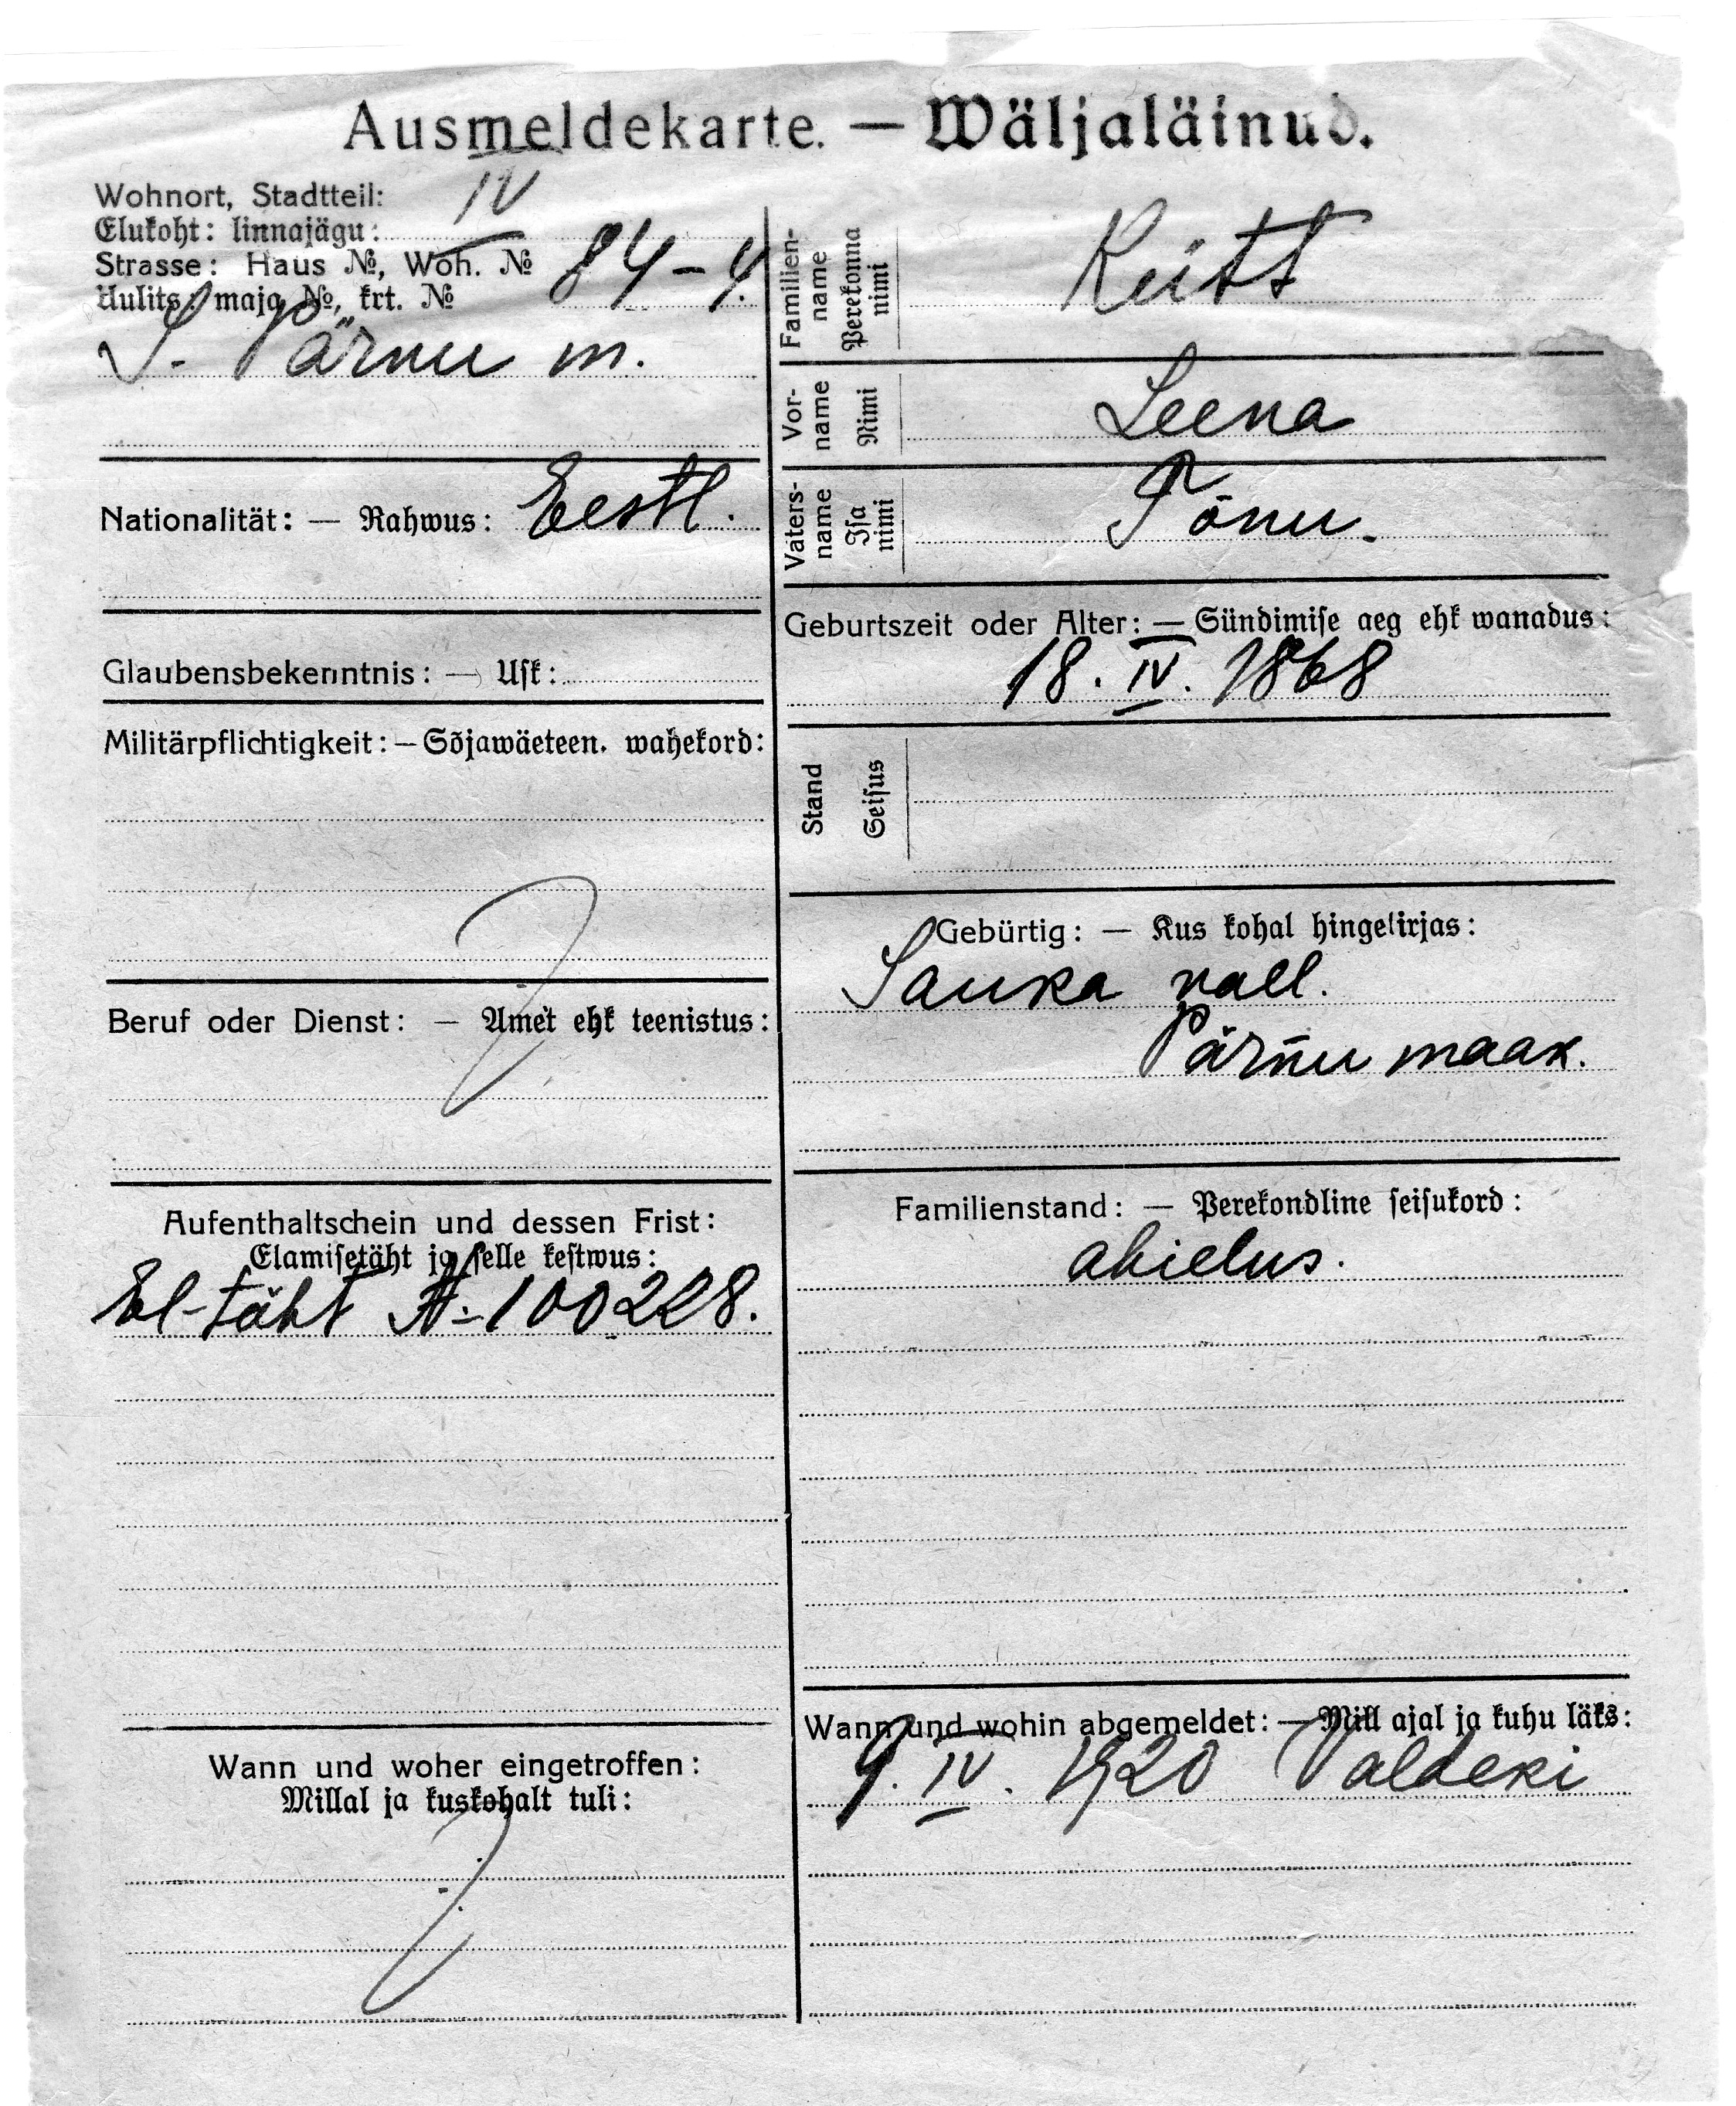 Ausmeldekarte. — Wäljaläinud.
Wohnort, Stadtteil:
Elukoht: linnajägu: IV
Strasse: Haus №, Woh. №
Uulits, maja №, krt. № 84-4.
S. Pärnu m.
Nationalität: — Rahwus: Eestl.
Glaubensbekenntnis: — Usk:
Militärpflichtigkeit: — Sõjawäeteen. wahekord:
Beruf oder Dienst: — Amet ehk teenistus:
Aufenthaltschein und dessen Frist:
Elamisetäht ja selle kestwus:
El-täht A-100228.
Wann und woher eingetroffen:
Millal ja kuskohalt tuli:
Familien-
name
Perekonna
nimi
Vor-
name
Nimi
Leena
Vaters-
name
Isa
nimi
Tõnu.
Geburtszeit oder Alter: — Sündimise aeg ehk wanadus:
18. IV. 1868
Stand
Seisus
Gebürtig: — Kus kohal hingekirjas:
Sauka vall.
Pärnu maak.
Familienstand: — Perekondline seisukord:
abielus.
Wann und wohin abgemeldet: — Mill ajal ja kuhu läks:
9. IV. 1920 Valdeki